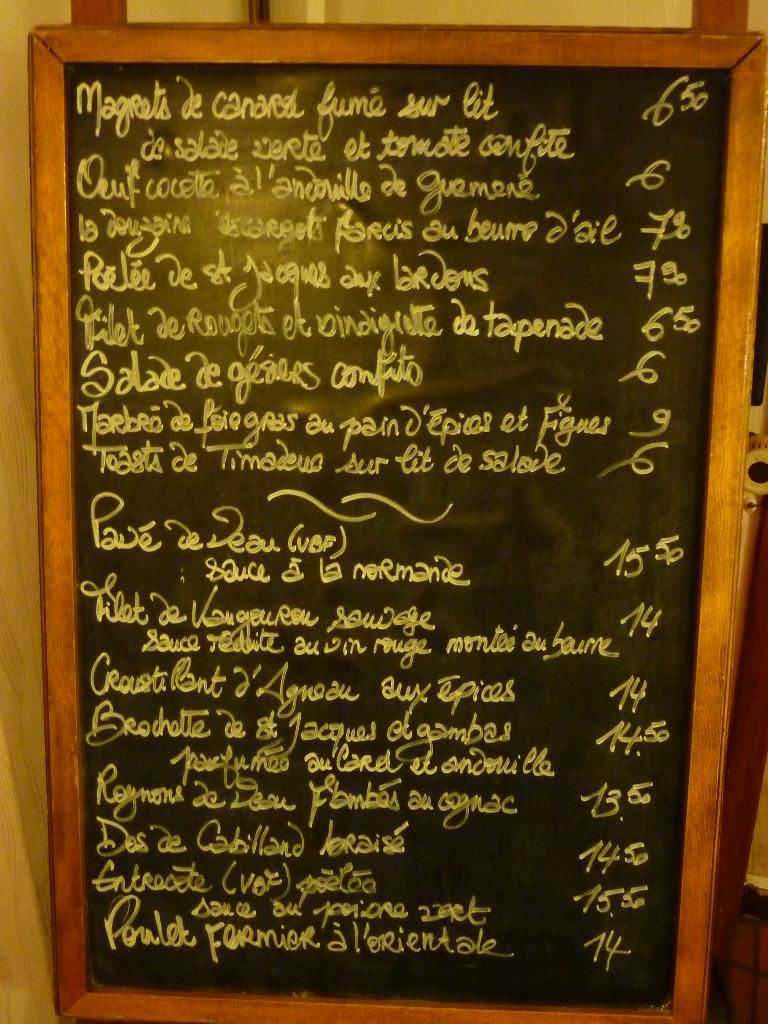 Magrets de canard fumé sur lit 6 50
de salade verte et tomate confite
Oeuf cocotte à l'andouille de Guemené 6
la douzaine d'escargots farcis au beurre d'ail 7 90
Poêlée de St Jacques aux lardons 7 90
Filet de Rougets et vinaigrette de tapenade 6 50
Salade de gésiers confits 6
Marbré de foie gras au pain d'épices et Figues 9
Toasts de Timadeuc sur lit de salade 6
Pavé de Veau (VBF) 15 50
sauce à la normande
Filet de Kangourou sauvage 14
sauce réduite au vin rouge montée au beurre
Croustillant d'Agneau aux épices 14
Brochette de St Jacques et gambas 14.50
parfumée au lard et andouille
Rognons de Veau flambés au cognac 13.50
Dos de Cabillaud braisé 14.50
Entrecôte (VBF) poêlée 15.50
sauce au poivre vert
Poulet fermier à l'orientale 14